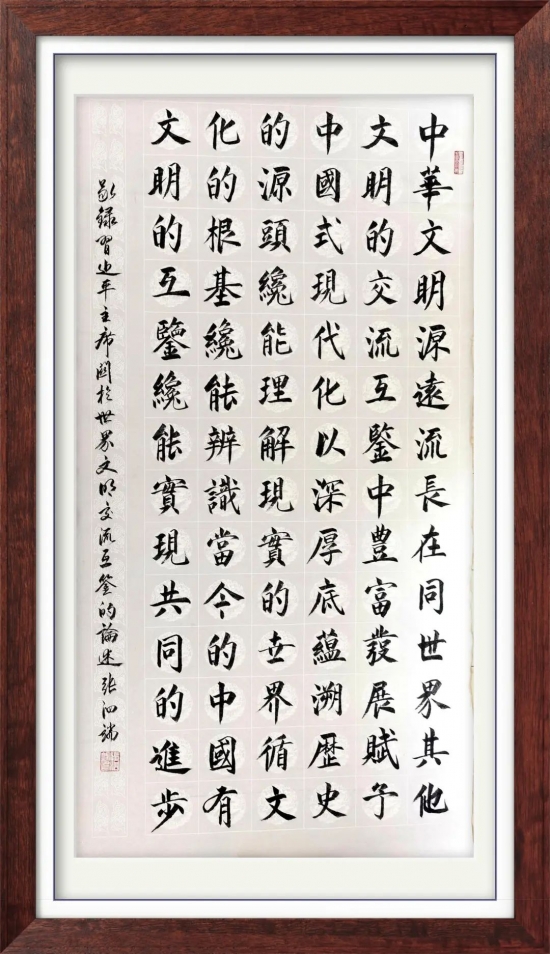 中華文明源遠流長在同世界其他
文明的交流互鑒中豐富發展賦予
中國式現代化以深厚底蘊溯歷史
的源頭纔能理解現實的世界循文
化的根基纔能辨識當今的中國有
文明的互鑒纔能實現共同的進步
敬錄習近平主席關於世界文明交流互鑒的論述張泗瑞